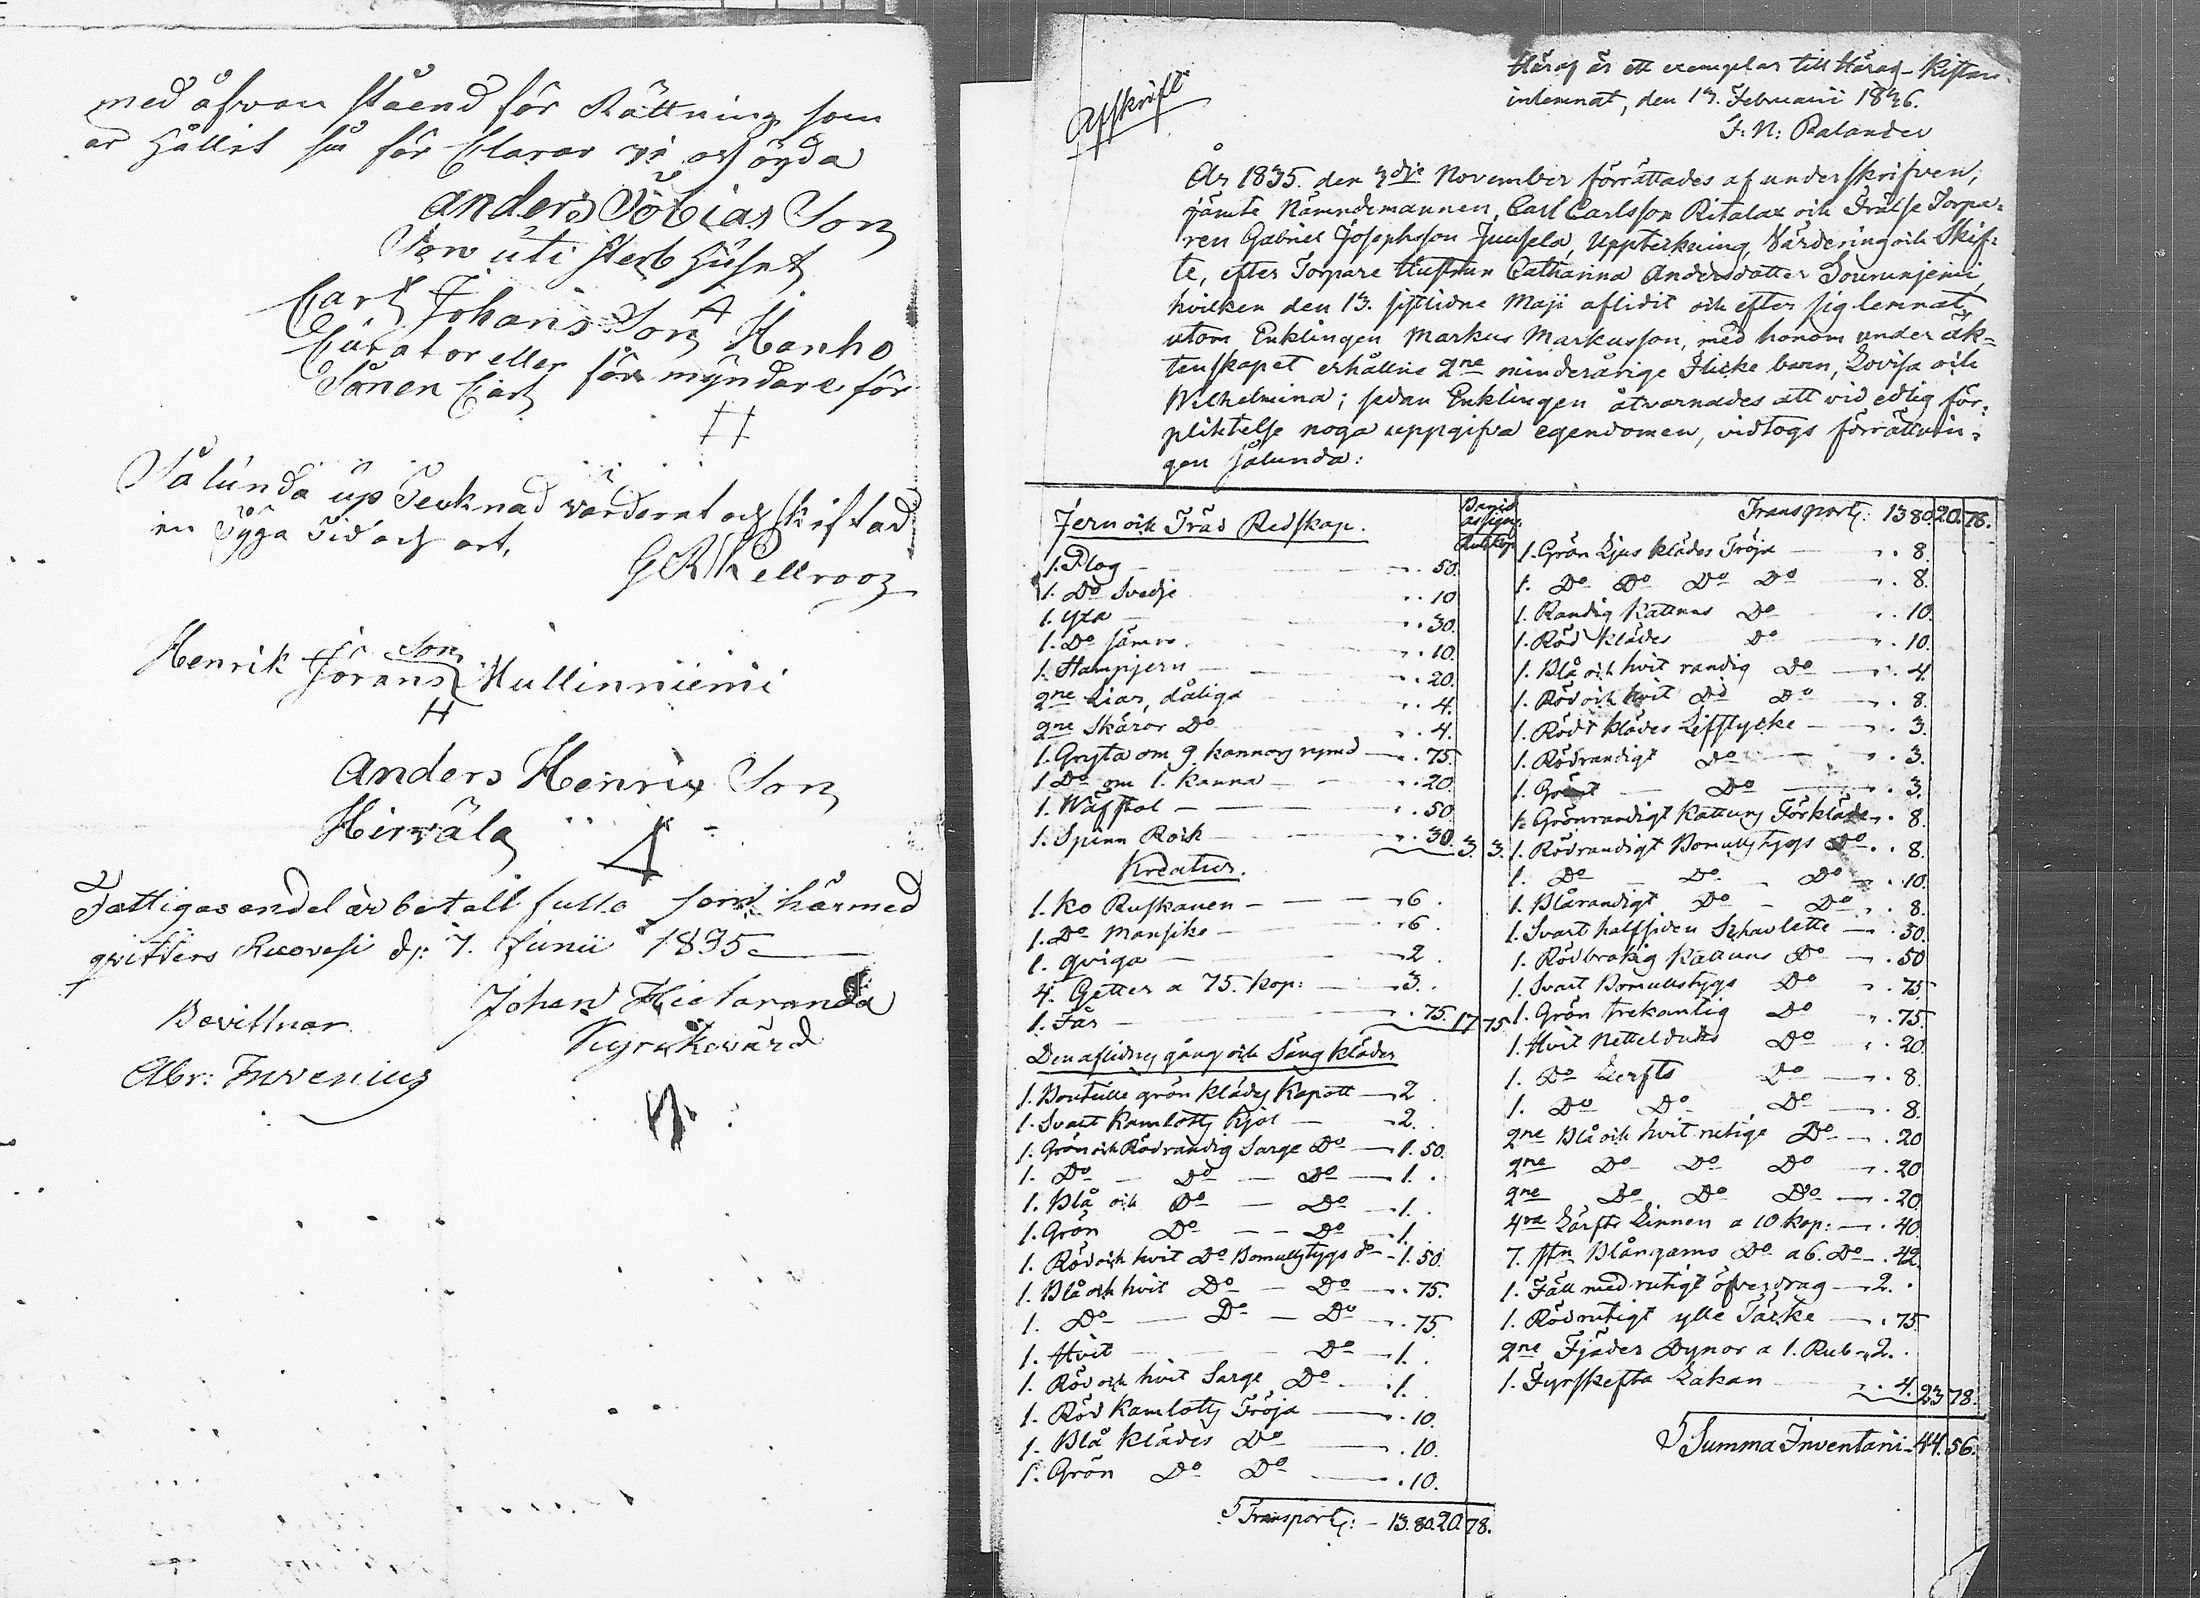 med åfwan stående för Rättning som
är Hållit så för Clarar vi os öyda
Anders Tobias Son
Son uti Sterb Huset
Carl Johans Son Hanho
Curator eller för myndare för
Sonen Carl
Så lunda up Tecknad värderat och Skiftad
in Tyga Tid och ort,
G R Hellrooz
Henrik Jörans Son Mullinniemi
Anders Henrix Son
Hirvälä
Fattigas andel är betalt fullo som härmed
qvitters Ruovesi d: 7. Junii 1835
Bevittnar Johan Hietaranda
Abr: Invenius Kyrckovärd
Afskrift
Häraf är ett exemplar till Härads-Kistan
inlemnat, den 13. Februarii 1836.
F: N: Ralander
År 1835. den 3dje November förrättades af underskrifven,
jämte Nämndemannen, Carl Carlsson Ritalax och Frälse Torpa=
ren Gabriel Josephsson Juusela, Uppteckning, Värdering och Skif=
te, efter Torpare Hustrun Catharina Andersdotter Sourunjemi,
hvilken den 13. sistlidne Maji aflidit och efter sig lemnat,
utom Enklingen Markus Markusson, med honom under äk=
tenskapet erhållne 2ne minderårige Flicke barn, Lovisa och
Wilhelmina; sedan Enklingen åtvarnades att vid edlig för=
pliktelse noga uppgifva egendomen, vidtogs förrättnin=
gen sålunda:
Jern och Träd Redskap. Banco assign: Rub. Kop.
1. Plog — 50.
1. Do Svedje — 10
1. Yxa — 30.
1. Do sämre — 10.
1. Stampjern — 20.
2ne Liar, dåliga — 4.
2ne Skäror Do — 4.
1. Gryta om 9. kannors rymd — 75.
1. Do om 1. Kanna — 20.
1. Wäfstol — 50
1. Spinn Rock — 30. 3 3.
Kreatur.
1. Ko Ruskanen — 6.
1. Do Mansike — 6.
1. Qviga — 2.
4. Getter a 75. Kop: — 3.
1. Får — 75. 17 75
Den aflidnes gång och Säng kläder
1. Boutelle grön klädes Kapott — 2.
1. Svart Kamlotts Kjol — 2.
1. Grön och Rödrandig Sarge Do — 1. 50.
1. Do — Do — Do — 1.
1. Blå och Do — Do — 1.
1. Grön Do — Do — 1.
1. Röd och hvit Do Bomullstygs do — 1. 50.
1. Blå och hvit Do — Do — 75.
1. Do — Do — Do — 75
1. Hvit — Do — 1.
1. Röd och hvit Sarge Do — 1.
1. Röd Kamlotts Tröja — 10.
1. Blå Klädes Do — 10.
1. Grön Do Do — 10.
Transport: — 13. 80. 20. 78.
Transport: 13 80. 20. 78.
1. Grön Ljus klädes Tröja — 8.
1. Do Do Do Do — 8.
1. Randig Kattuns Do — 10.
1. Röd Klädes Do — 10.
1. Blå och hvit randig Do — 4.
1. Röd och hvit Do Do — 8.
1. Rödt klädes Lifstycke — 3.
1. Rödrandigt Do — 3.
1. Grönt — Do — 3.
1. Grönrandigt Kattuns Förkläde — 8.
1. Rödrandigt Bomullstygs Do — 8.
1. Do — Do — Do — 10.
1. Blårandigt Do — Do — 8.
1. Svart halfsiden Scharlette — 50.
1. Rödbrokig Kattuns Do — 50
1. Svart Bomullstygs Do — 75
1. Grön trekantig Do — 75.
1. Hvit Nettelduks Do — 20
1. Do Lerfts Do — 8.
1. Do Do Do — 8.
2ne Blå och hvit rutige Do — 20
2ne Do Do Do — 20.
2ne Do Do Do — 20
4ra Lärfts Linnen a 10 kop: — 40.
7. Blångarns Do a 6. Do — 42.
1. Fäll med rutigt öfverdrag — 2.
1. Rödrutigt ylle Täcke — 75
2ne Fjäder Dynor a 1. Rub — 2.
1. Fyrskefta Lakan — 4. 23 78.
Summa Inventarii — 44. 56.